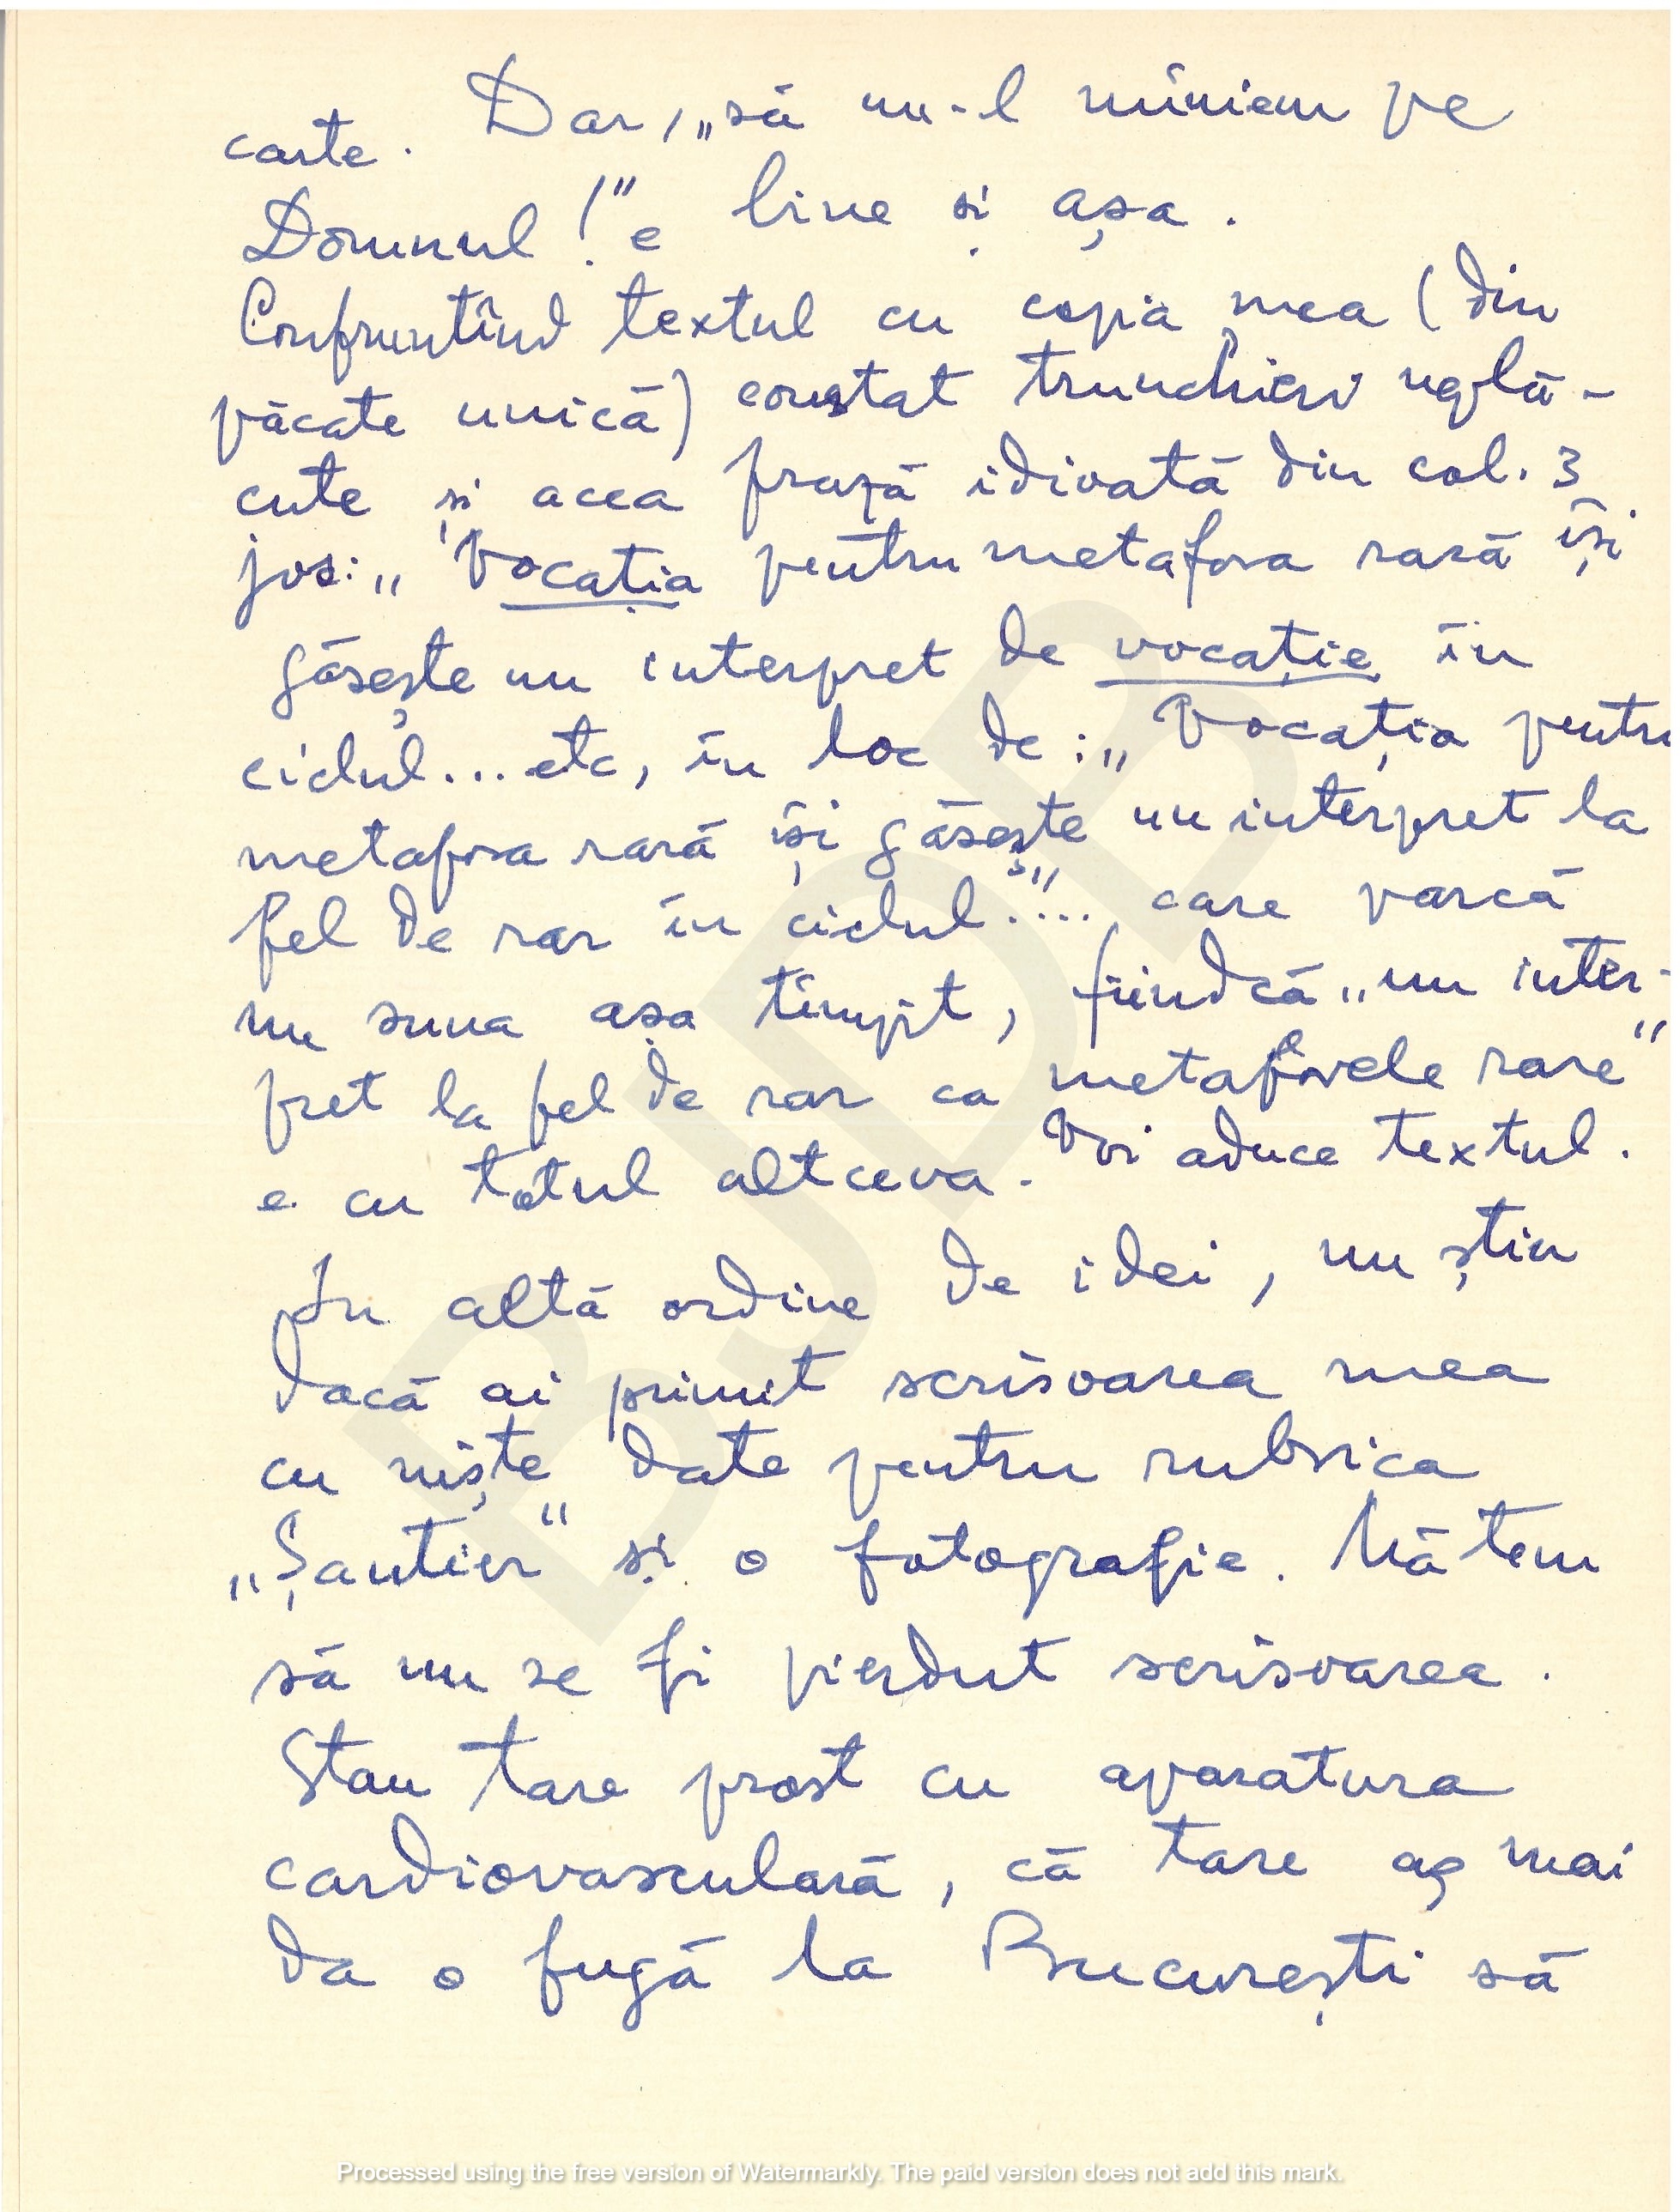 carte. Dar, „să nu-l mîniem pe
Domnul!" e bine și așa.
Confruntînd textul cu copia mea (din
păcate unică) constat trunchieri neplă-
cute și acea frază idioată din col. 3
jos: „Vocația pentru metafora rară își
găsește un interpret de vocație în
ciclul... etc, în loc de: „Vocația pentru
metafora rară își găsește un interpret la
fel de rar în ciclul"... care parcă
nu suna așa tîmpit, fiindcă „un inter-
pret la fel de rar ca metaforele rare"
e cu totul altceva. Voi aduce textul.
In altă ordine de idei, nu știu
dacă ai primit scrisoarea mea
cu niște date pentru rubrica
„Șantier" și o fotografie. Mă tem
să nu se fi pierdut scrisoarea.
Stau tare prost cu aparatura
cardiovasculară, că tare aș mai
da o fugă la București să
BJDB
Processed using the free version of Watermarkly. The paid version does not add this mark.